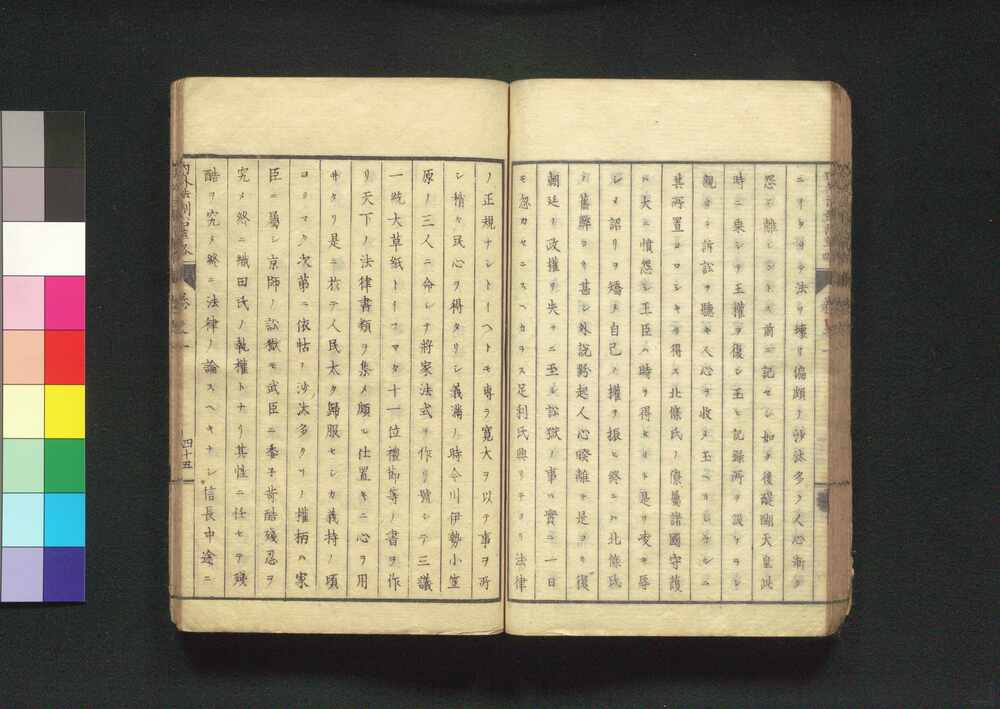 ニイタリテ法リ壊リ偏頗ノ沙汰多ク人心漸ク
怨ミ離レシコト前ニ記セシ如シ後醍醐天皇此
時ニ乗シテ王權ヲ復シ玉ヒ記録所ヲ設ケラレ
親カラ訴訟ヲ聽キ人心ヲ收メ玉ヘリシカシニ
其所置ヨロシキヲ得ス北條氏ノ餘屬諸國守護
ハ大ニ憤怨シ王臣ハ時ヲ得セリト是リ
シメ詔リヲ矯メ自己ノ權ヲ振ヒ終ニハ北條氏
ノ舊弊ヨリ甚シ外說黔起人心睽離シ是ヨリ復
朝廷ノ政權ヲ失フニ至レ訟獄ノ事ハ實ニ一日
モ忽カセニスヘカラス足利氏興リテヨリ法律
ノ正規ナシトイヘトモ專ラ寬大ヲ以テ事ヲ所
シ稍々民心ヲ得タリシ義滿ノ時今川伊勢小笠
原ノ三人ニ命シテ將家法式ヲ作リ號シテ三議
一統大草紙トイフマタ十一位禮節等ノ書ヲ作
リ天下ノ法律書類ヲ集メ頗ヒ仕置キニ心ヲ用
ヰタリ是ニ於テ人民太タ歸服セシカ義持ノ頃
ヨリマタ次第ニ依怙ノ沙汰多クソノ權柄ハ家
臣ニ屬シ京師ノ訟獄モ武臣ニ委子苛酷殘忍ヲ
究メ終ニ織田氏ノ執權トナリ其性ニ任セテ殘
酷ヲ究メ終ニ法律ノ論スヘキナシ信長中途ニ
四十五